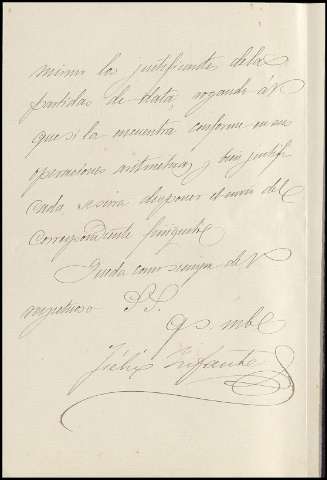 mismo los justificantes de las
partidas de data, rogando á V
que si la encuentra conforme en sus
operaciones aritméticas y bien justifi
cada se sirva disponer el envio del
correspondiente finiquito
Queda como siempre de V
respetuoso S.S.
q s. m b
Félix Infante